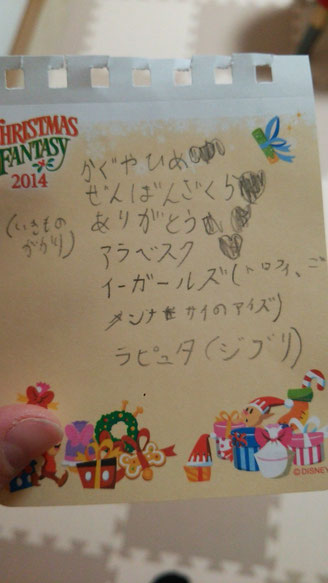 CHRISTMAS
FANTASY
2014
かぐやひめ
ぜんばんざくら
ありがとう
(いきもの
ががり)
アラベスク
イーガールズ(トロフィ、ご
メンナサイのアイズ)
ラピュタ(ジブリ)
©DISNEY